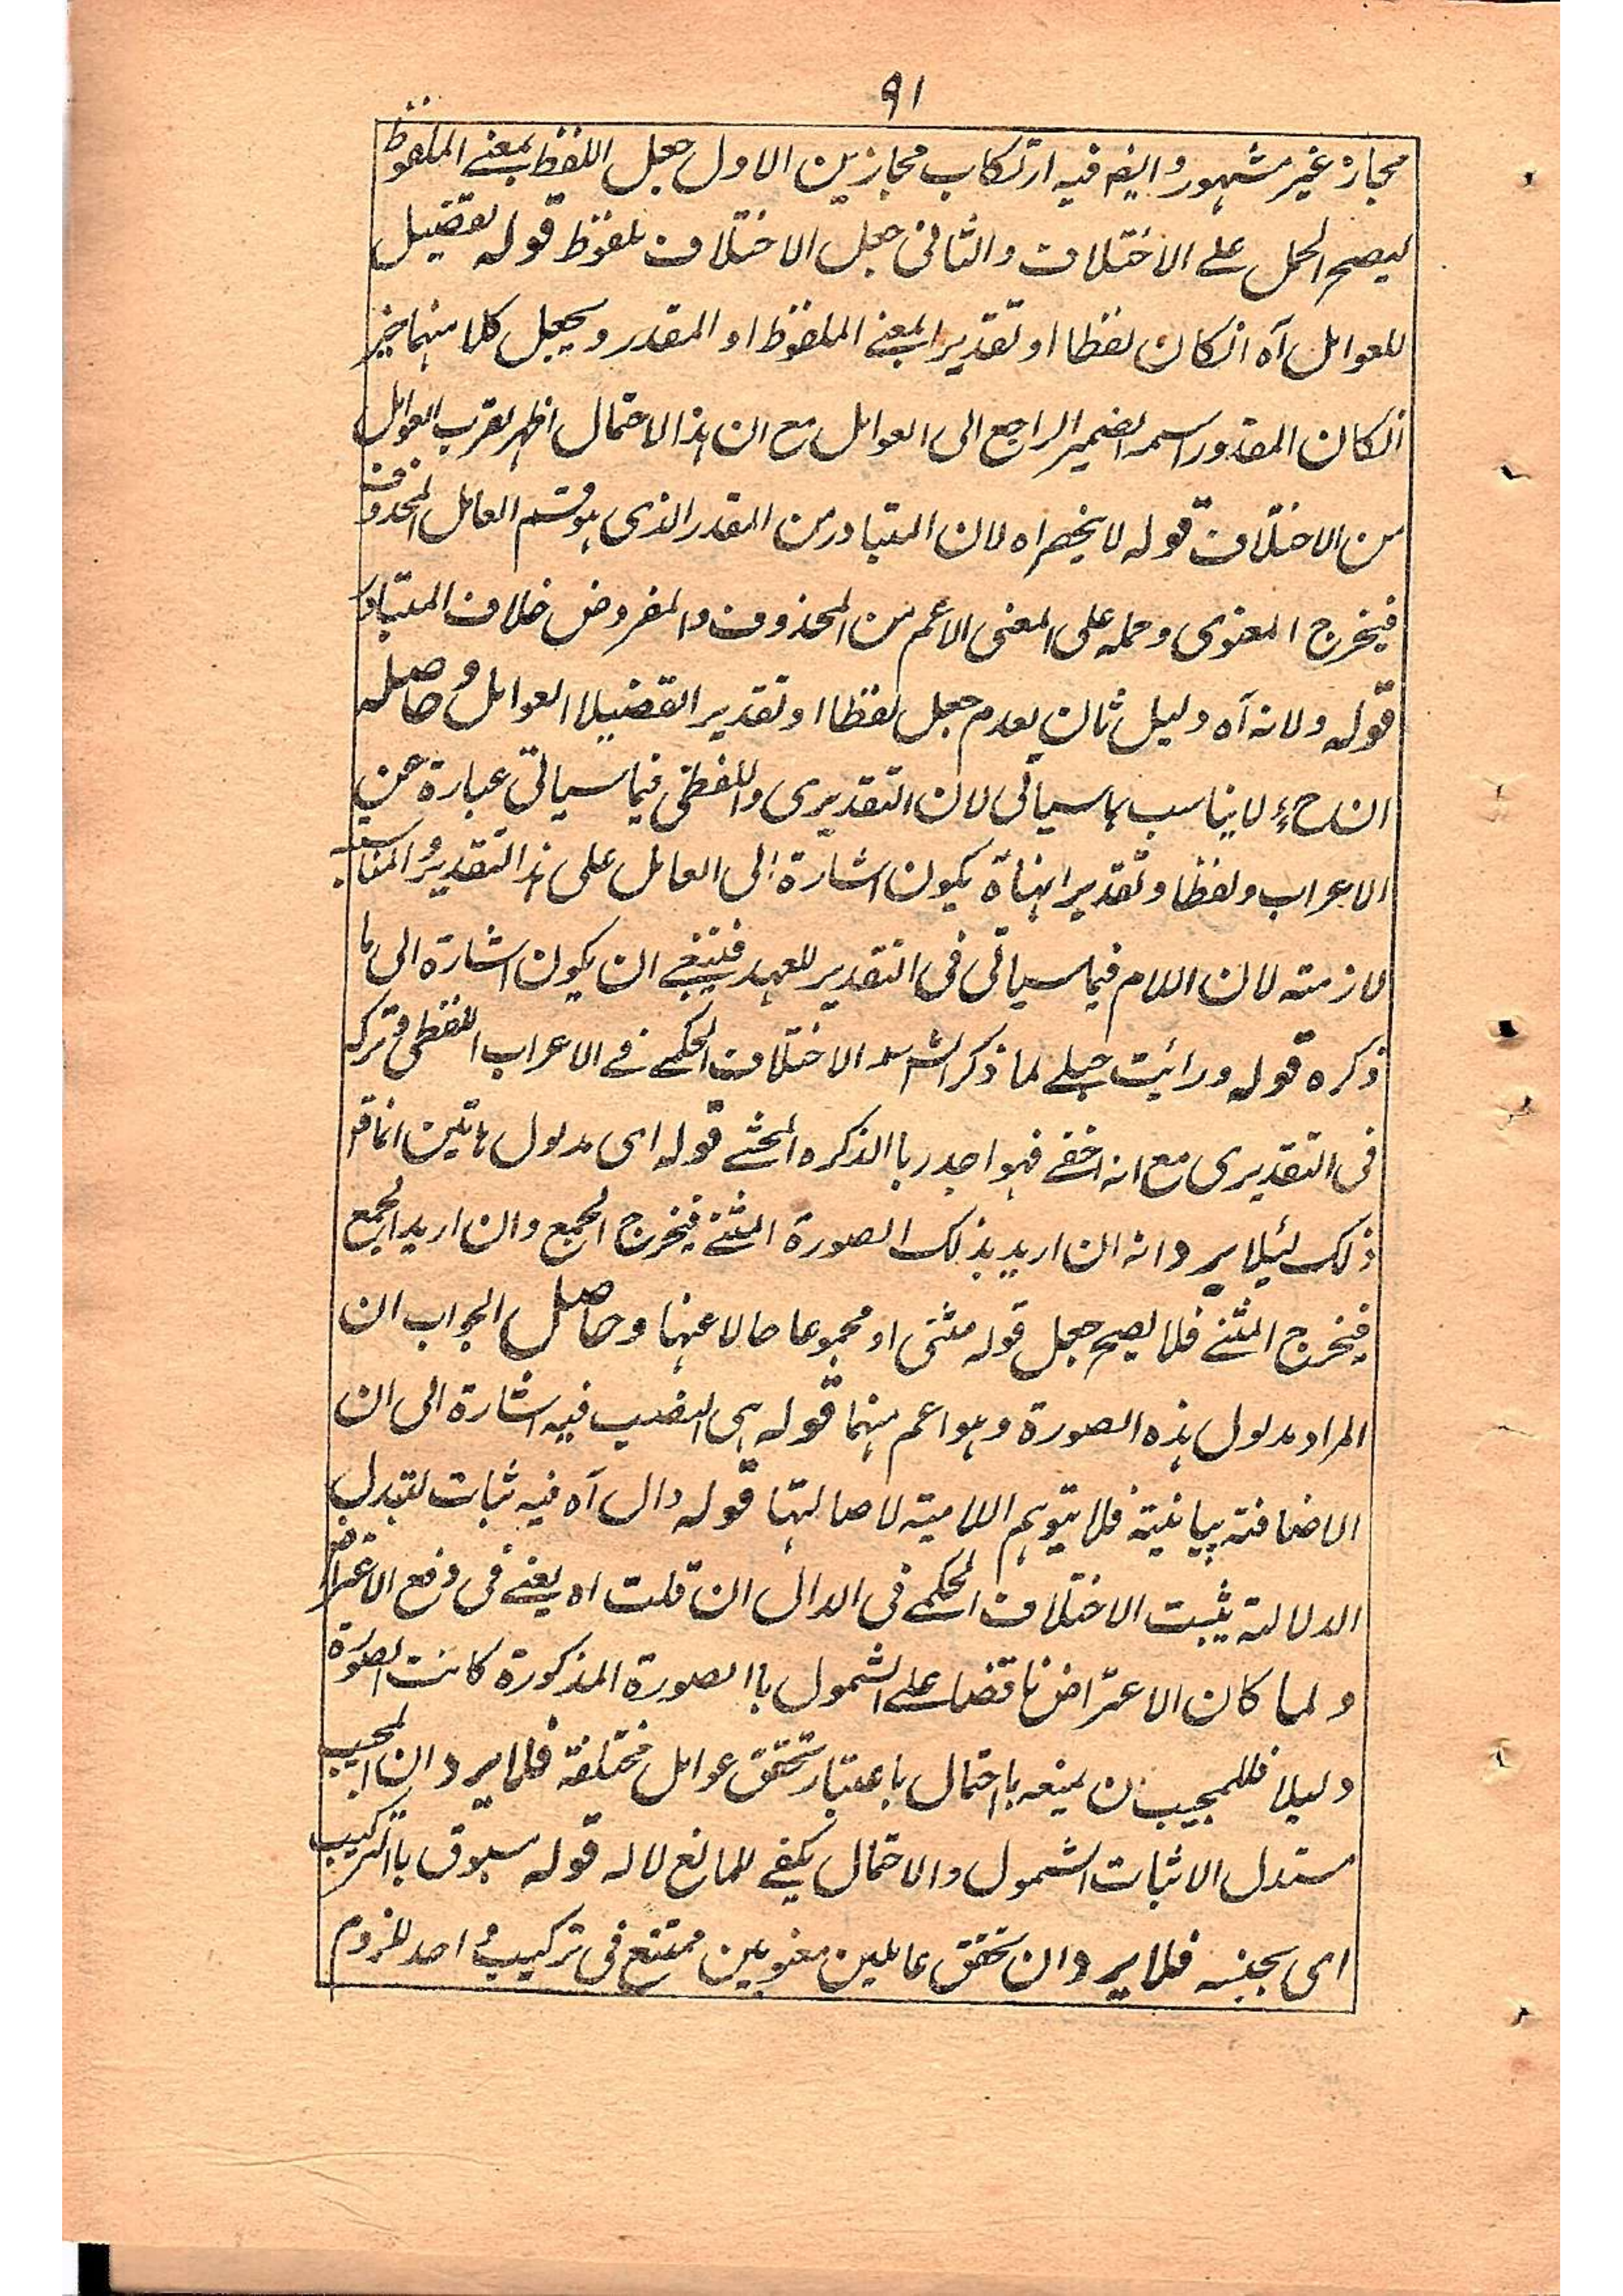 ۹۱
مجاز غیر مشہور وایضہ فیہ ارتکاب مجازین الاول جعل اللفظ بمعنے الملفوظ
لیصح الحمل علے الاختلاف والثانی جعل الاختلاف ملفوظ قولہ تفصیل
للعوامل آہ انکان لفظا او تقدیرا بمعنے الملفوظ او المقدر ویجعل کلا منہما خبر
انکان المقدور اسمہ الضمیر الراجع الی العوامل مع ان ہذا الاحتمال اظہر لقرب العوامل
من الاختلاف قولہ لا یخصراہ لان المتبادر من المقدر الذی ہو قسم العامل المحذوف
فیخرج المعنوی وحملہ علی المعنی الاعم من المحذوف والمفروض خلاف المتبادر
قولہ ولانہ آہ دلیل ثان بعدم جعل لفظا او تقدیرا تفضیلا العوامل وحاصلہ
ان ح لایناسب بماسیاتی لان التقدیری واللفظی فیما سیاتی عبارۃ عن
الاعراب ولفظا وتقدیرا ہناۃ یکون اشارۃ الی العامل علی ہذا التقدیر والمناسبہ
لازمتہ لان اللام فیما سیاتی فی التقدیر للعہد فینبغے ان یکون اشارۃ الی ما
ذکرہ قولہ ورائیت حبلے لما ذکر الاختلاف الحکمے فے الاعراب اللفظی وترکہ
فی التقدیری مع انہ اخفے فہو اجدر باالذکرہ المحشے قولہ ای مدلول ہاتین انما قر
ذلک لئیلا یرد انہ ان ارید بذلک الصورۃ المثنے فیخرج الجمع وان ارید الجمع
فیخرج المثنے فلا یصح جعل قولہ مثنی او مجموعا حالا عنہا وحاصل الجواب ان
المراد مدلول ہذہ الصورۃ وہو اعم منہما قولہ ہی النصب فیہ اشارۃ الی ان
الاضافتہ بیانیتہ فلا یتوہم اللامیتہ لاصالتہا قولہ دال آہ فیہ ثبات لتبدل
الدلالتہ یثبت الاختلاف الحکمے فی الدال ان قلت اہ یعنے فی دفع الاعتراض
ولما کان الاعتراض ناقضا علے الشمول باالصورۃ المذکورۃ کانت الصورۃ
دلیلا فللمجیب ن یمنعہ بااحتمال باعتبار تحقق عوامل مختلفۃ فلا یرد ان المجیب
مستدل الاثبات الشمول والاحتمال یکفے للمانع لالہ قولہ مسبوق باالترکیب
ای بجنسہ فلا یرد ان تحقق عاملین معنویین ممتنع فی ترکیب واحد للزوم